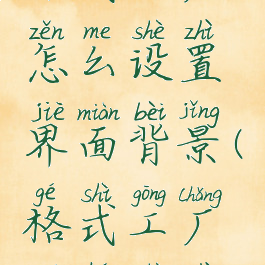 zěn me shè zhì
怎么设置
jiè miàn bèi jǐng
界面背景(
gé shì gōng chǎng
格式工厂